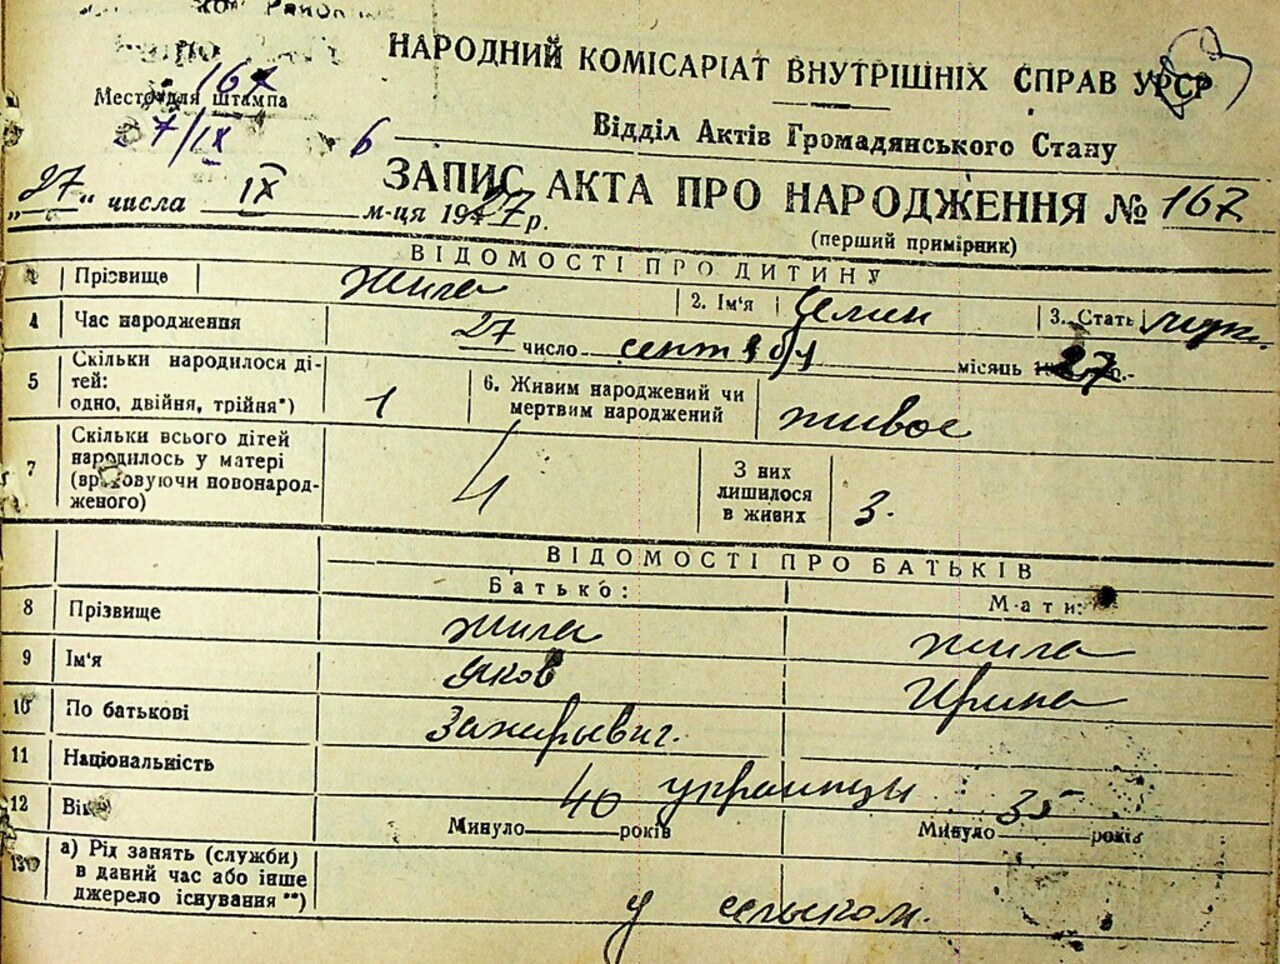 НАРОДНИЙ КОМІСАРІАТ ВНУТРІШНІХ СПРАВ УРСР
167
Место для штампа
27/IX 6
Відділ Актів Громадянського Стану
ЗАПИС АКТА ПРО НАРОДЖЕННЯ № 167
„27“ числа IX м-ця 1927 р.
(перший примірник)
ВІДОМОСТІ ПРО ДИТИНУ
Прізвище Жила 2. Ім'я 3. Стать
4 Час народження 27 число сентября місяць 27 р.-
5 Скільки народилося дітей: одно, двійня, трійня*) 1 6. Живим народжений чи мертвим народжений живое
7 Скільки всього дітей народилось у матері (враховуючи новонародженого) 4 З них лишилося в живих 3.
ВІДОМОСТІ ПРО БАТЬКІВ
Батько: Мати:
8 Прізвище Жила Жила
9 Ім'я Яков Ирина
10 По батькові
11 Національність украинцы
12 Вік Минуло 40 років Минуло 35 років
13 а) Рід занять (служби) в даний час або інше джерело існування **)